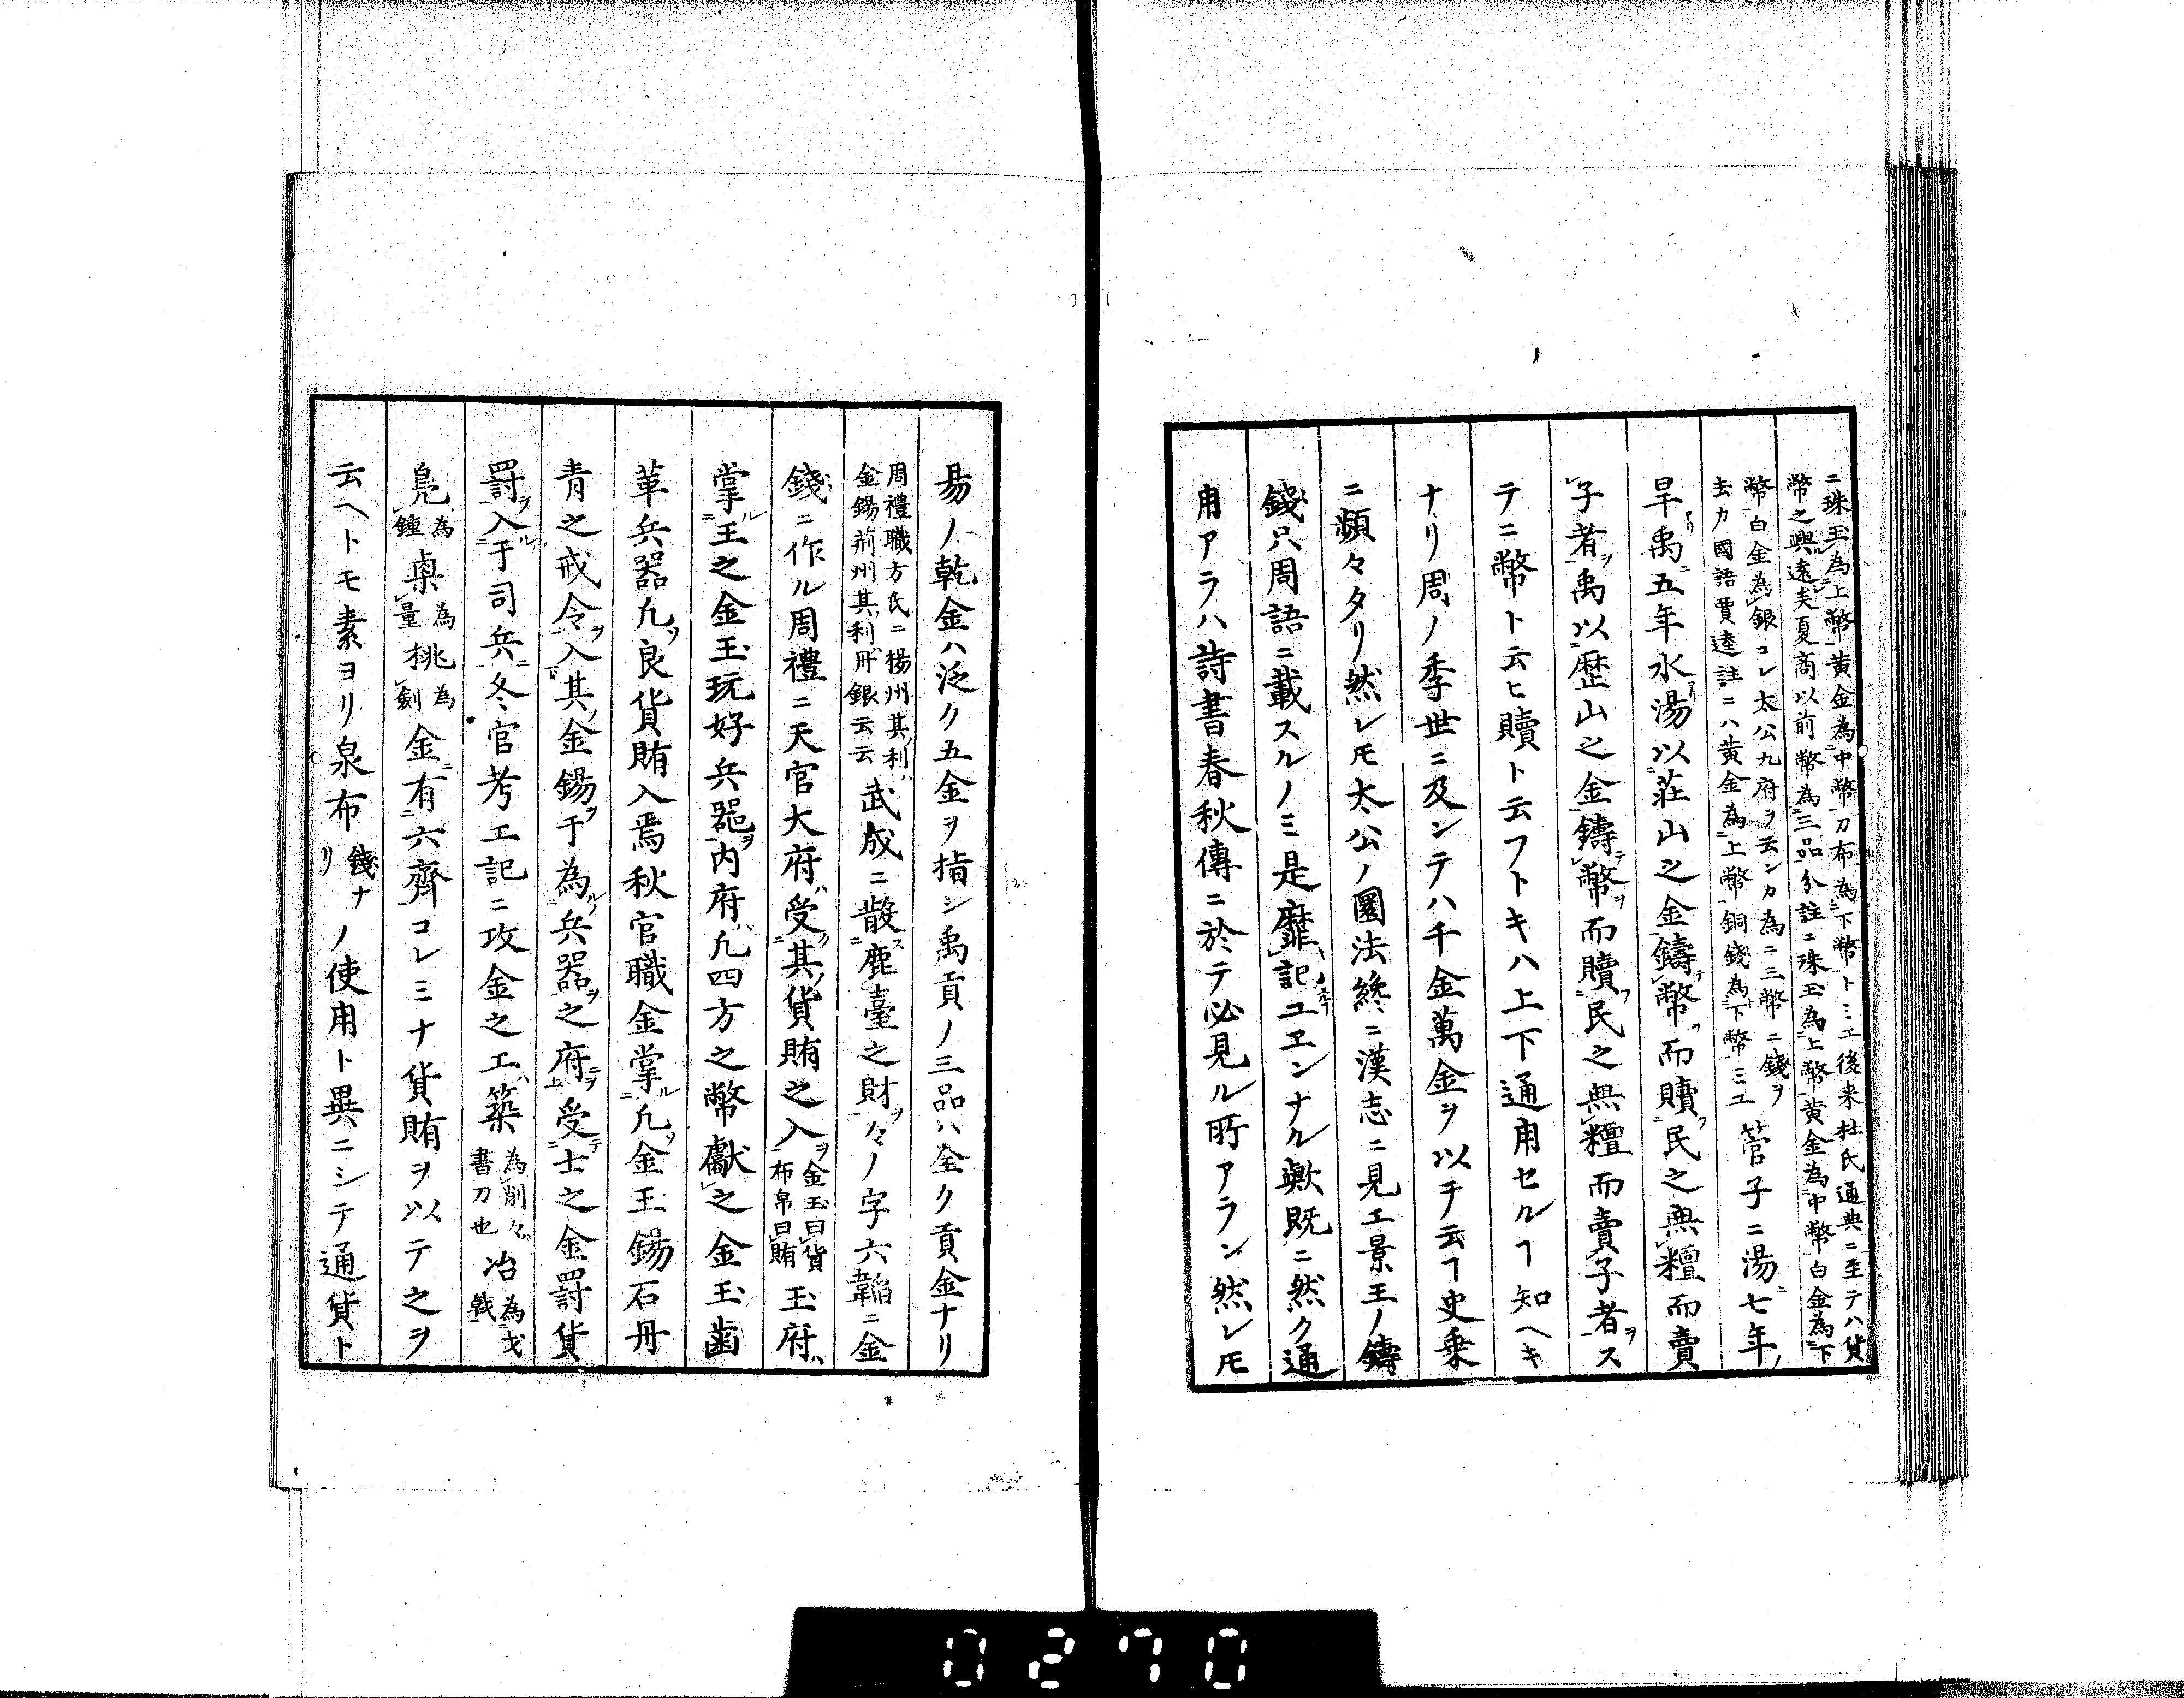 ニ珠玉為上幣黄金為中幣刀布為下幣トミエ後来杜氏通典ニ至テハ貨
幣之興遠矣夏商以前幣為三品分註ニ珠玉為上幣黄金為中幣白金為下
幣白金為銀コレ太公九府ヲ云ンカ為ニ三幣ニ錢ヲ
去カ國語賈逵註ニハ黄金為上幣銅錢為下幣ミユ
管子ニ湯七年ノ
旱禹五年水湯以莊山之金鑄幣而贖民之無糧而賣
子者禹以歴山之金鑄幣而贖民之無糧而賣子者ス
テニ幣ト云ヒ贖ト云フトキハ上下通用セルヿ知ヘキ
ナリ周ノ季世ニ及ンテハ千金萬金ヲ以チ云ヿ史乗
ニ頻々タリ然レ𪜈太公ノ圜法終ニ漢志ニ見エ景王ノ鑄
錢只周語ニ載スルノミ是靡記ユエンナル歟既ニ然ク通
用アラハ詩書春秋傳ニ於テ必見ル所アラン然レ𪜈
易ノ乾金ハ泛ク五金ヲ指シ禹貢ノ三品ハ全ク貢金ナリ
周禮職方氏ニ楊州其利ハ
金錫荊州其利ハ丹銀云云
武成ニ散鹿臺之財々ノ字六韜ニ金
錢ニ作ル周禮ニ天官大府ハ受其貨賄之入
金玉曰貨
布帛曰賄
玉府ハ
掌王之金玉玩好兵器内府ハ凡四方之幣獻之金玉齒
革兵器凡良貨賄入焉秋官職金掌凡金玉錫石丹
青之戒令入其金錫于為兵器之府受士之金罰貨
罰入于司兵冬官考工記ニ攻金之工築
為削々
書刀也
冶
為戈
戟
鳧
為
鍾
㮚
為
量
桃
為
劍
金有六齊コレミナ貨賄ヲ以テ之ヲ
云ヘトモ素ヨリ泉布
錢ナ
リ
ノ使用ト異ニシテ通貨ト
0270